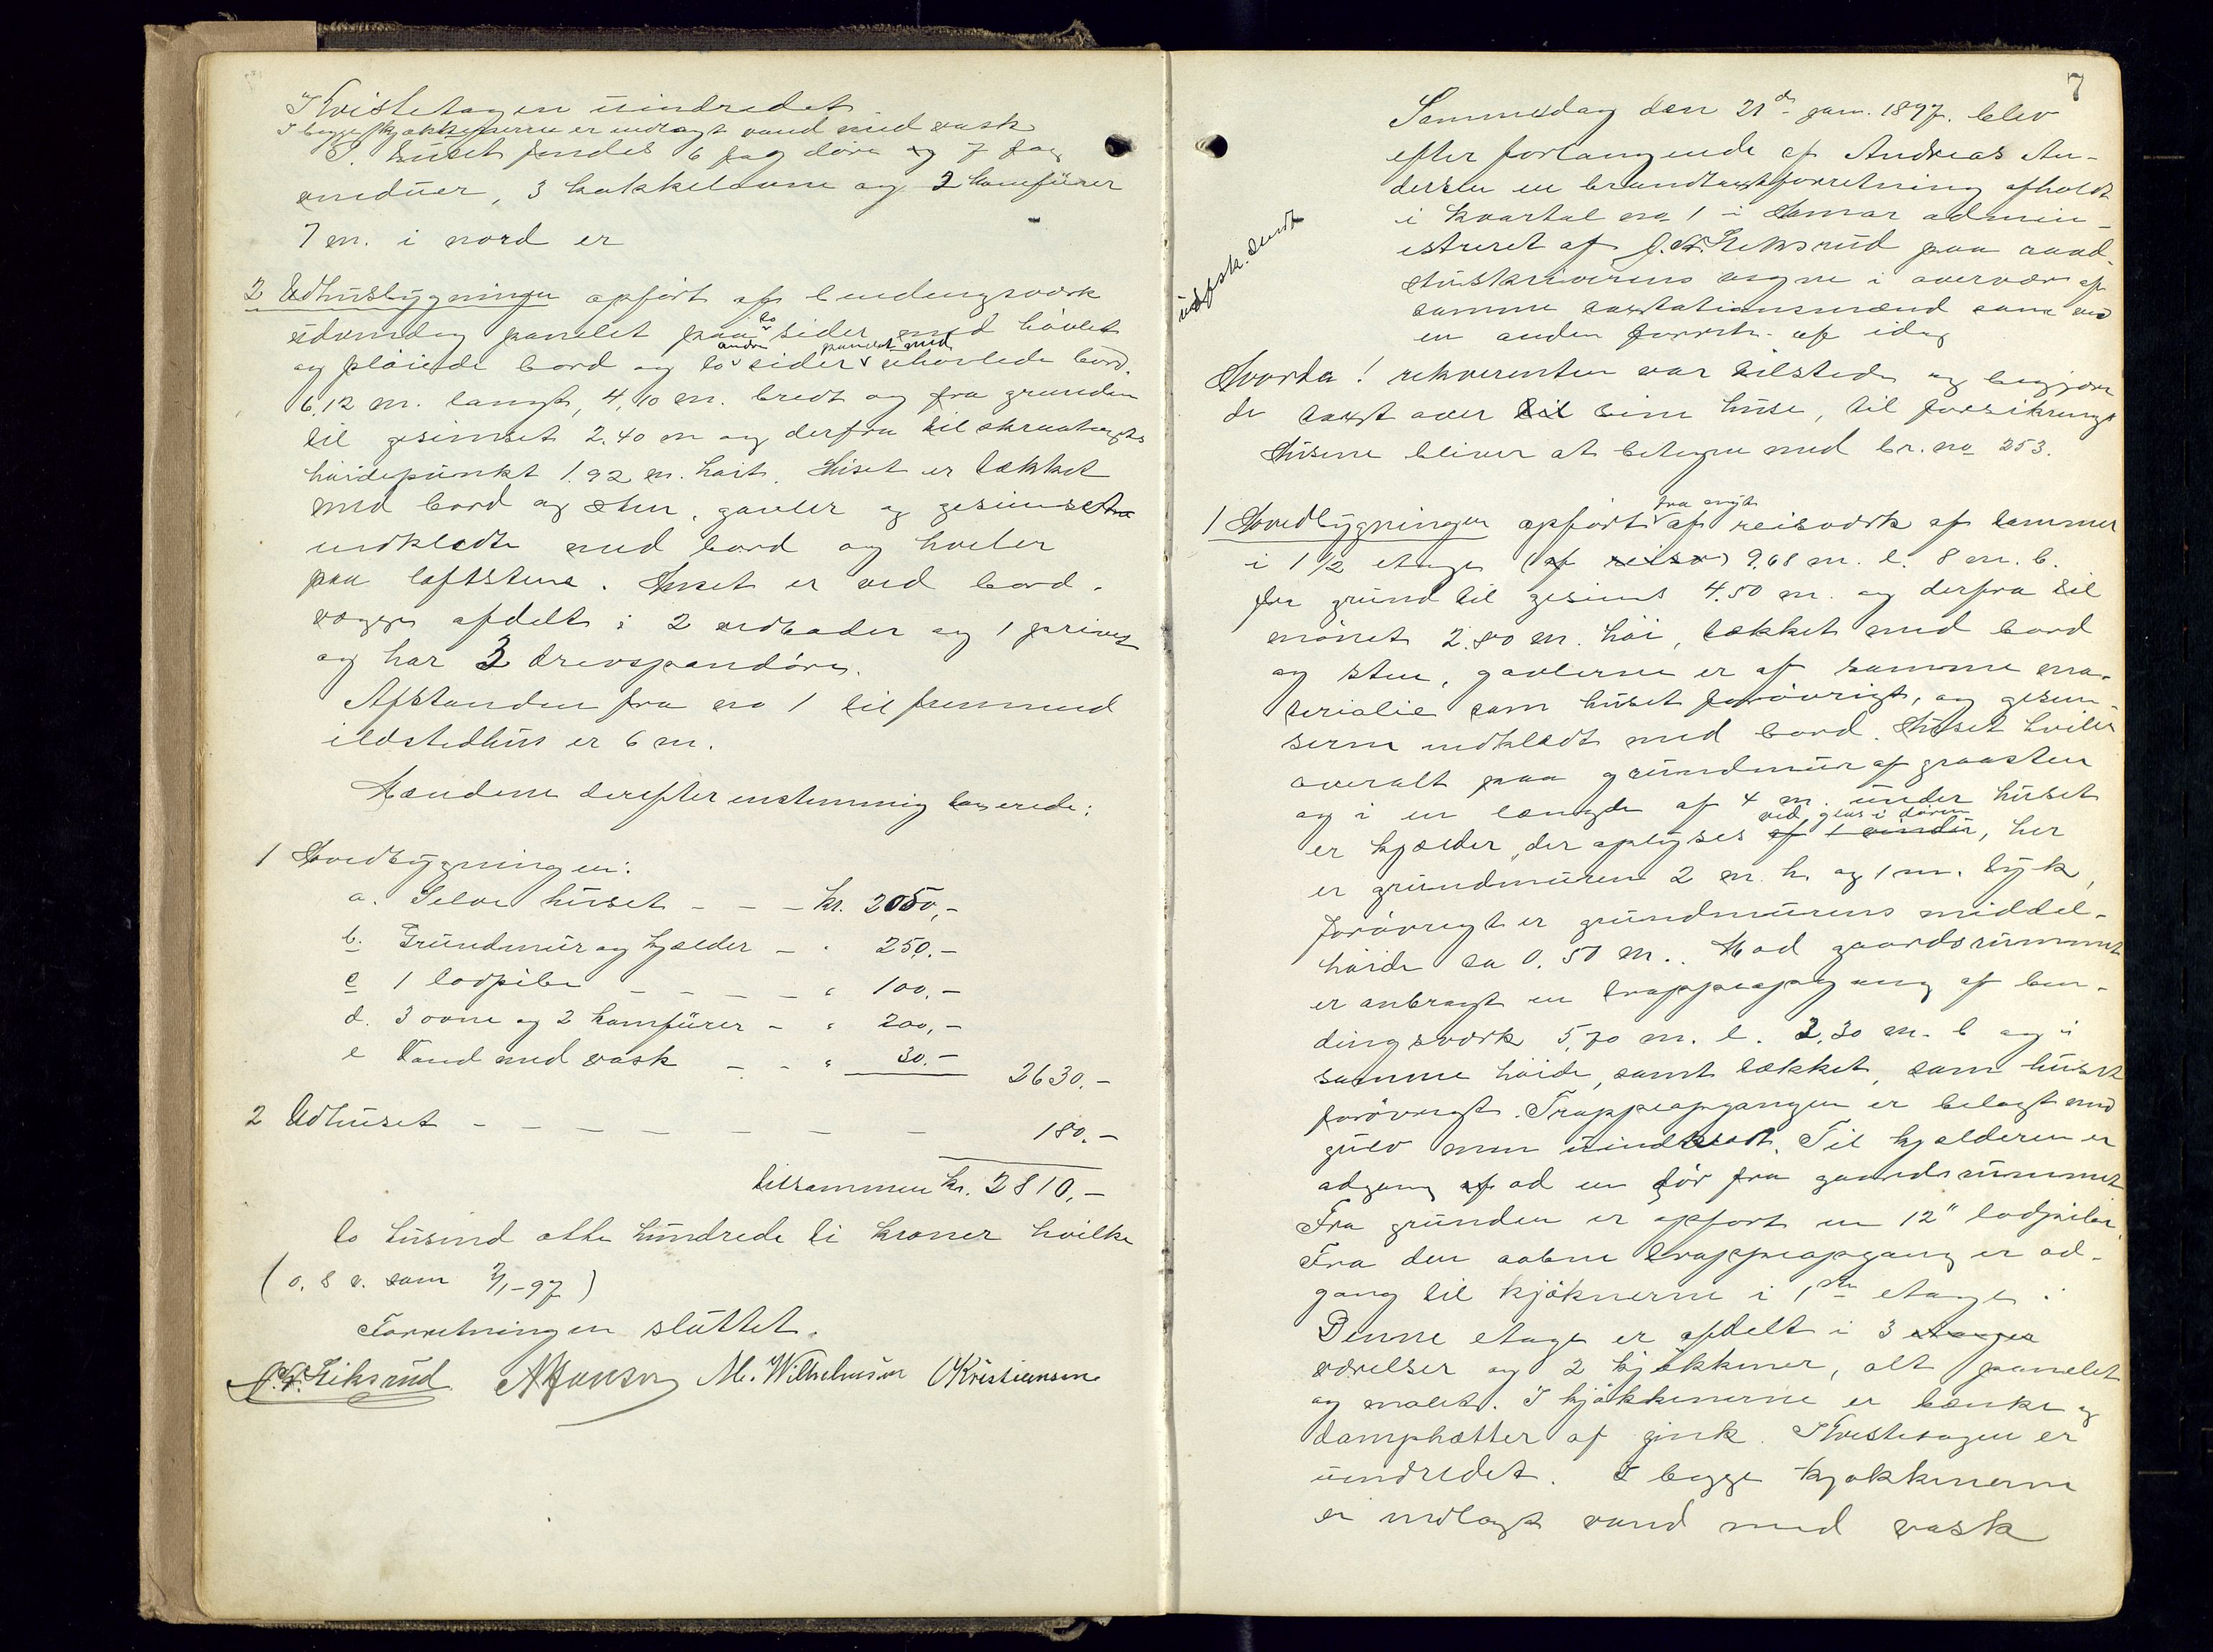 I Kvistetagen uindredet
I begge kjøkkenerne er indlagt vand med vask
I huset findes 6 fag døre og 7 fag
vinduer, 3 kakkelovne og 2 komfürer
7 m. i nord er
2 Udhusbygningen opført af bindingsværk
udvendig panelet paa to sider med høvlet
og pløiede bord og to andre sider panelet med uhøvlede bord.
6,12 m. langt, 4,10 m. bredt og fra grunden
til gesimset 2.40 m og derfra til skraatagets
høidepunkt 1.92 m. høit. Huset er tækket
med bord og sten, gavler og gesimserne
indklædte med bord og hviler
paa løftstene. Huset er ved bord-
vægge afdelt i 2 vedboder og 1 privet
og har 3 drevspandøre.
Afstanden fra no 1 til fremmed
ildstedhus er 6 m.
Mændene derefter enstemmig taxerede:
1 Hovedbygningen:
a. Selve huset - - - kr. 2050,-
b. Grundmur og kjælder - " 250.-
c 1 lodpibe - - - - " 100.-
d. 3 ovne og 2 komfürer - " 200,-
e Vand med vask - - " 30.- 2630.-
2 Udhuset - - - - - - - 180.-
tilsammen kr. 2810,-
to tusind otte hundrede ti kroner hvilke
(o. s v. som 2/1-97)
Forretningen sluttet.
M. Wilhelmsen O Kristiansen
7
Sammedag den 21de jan. 1897. blev
efter forlangende af Andreas An-
dersen en brandtaxtforretning afholdt
i kvartal no 1 i Hamar admin-
istreret af paa raad-
stuskriverens vegne i overvær af
samme taxtationsmænd som ved
en anden forretn. af idag
udskr. sendt
Hvorda! rekvirenten var tilstede og begjær
de taxt over til sine huse, til forsikring
Husene bliver at betegne med br. no 253.
1 Hovedbygningen opført fra nyt af reisværk af tømmer
i 1 1/2 etage (af reisv) 9.68 m. l. 8 m. b.
fra grund til gesims 4.50 m. og derfra til
mønet 2.80 m. høi, tækket med bord
og sten, gavlerne er af samme ma-
terialie som huset forøvrigt, og gesim-
serne indklædt med bord. Huset hviler
overalt paa grundmur af graasten
og i en længde af 4 m. under huset
er kjælder, der oplyses af 1 vindu ved glas i døren, her
er grundmuren 2 m. h. og 1 m. tyk,
forøvrigt er grundmurens middel-
høide ca 0.50 m.. Mod gaardsrummet
er anbragt en trappeopgang af bin-
dingsværk 5,70 m. l. 2,30 m. b og i
samme høide, samt tækket, som huset
forøvrigt. Trappeopgangen er belagt med
gulv men uindklædt. Til kjælderen er
adgang af ad en dør fra gaardsrummet
Fra grunden er opført en 12" lodpibe.
Fra den aabne trappeopgang er ad-
gang til kjøknerne i 1ste etage.
Denne etage er afdelt i 3 etages
værelser og 2 kjøkkner, alt panelet
og malet. I kjøkkenerne er bænke og
damphætter af zink. I Kvistetagen er
uindredet. I begge kjøkkenerne
er indlagt vand med vask